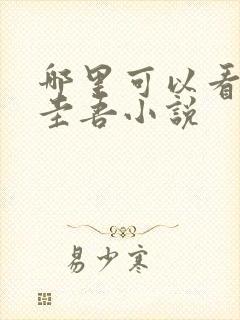 哪里可以看
圭吾小说
易少寒